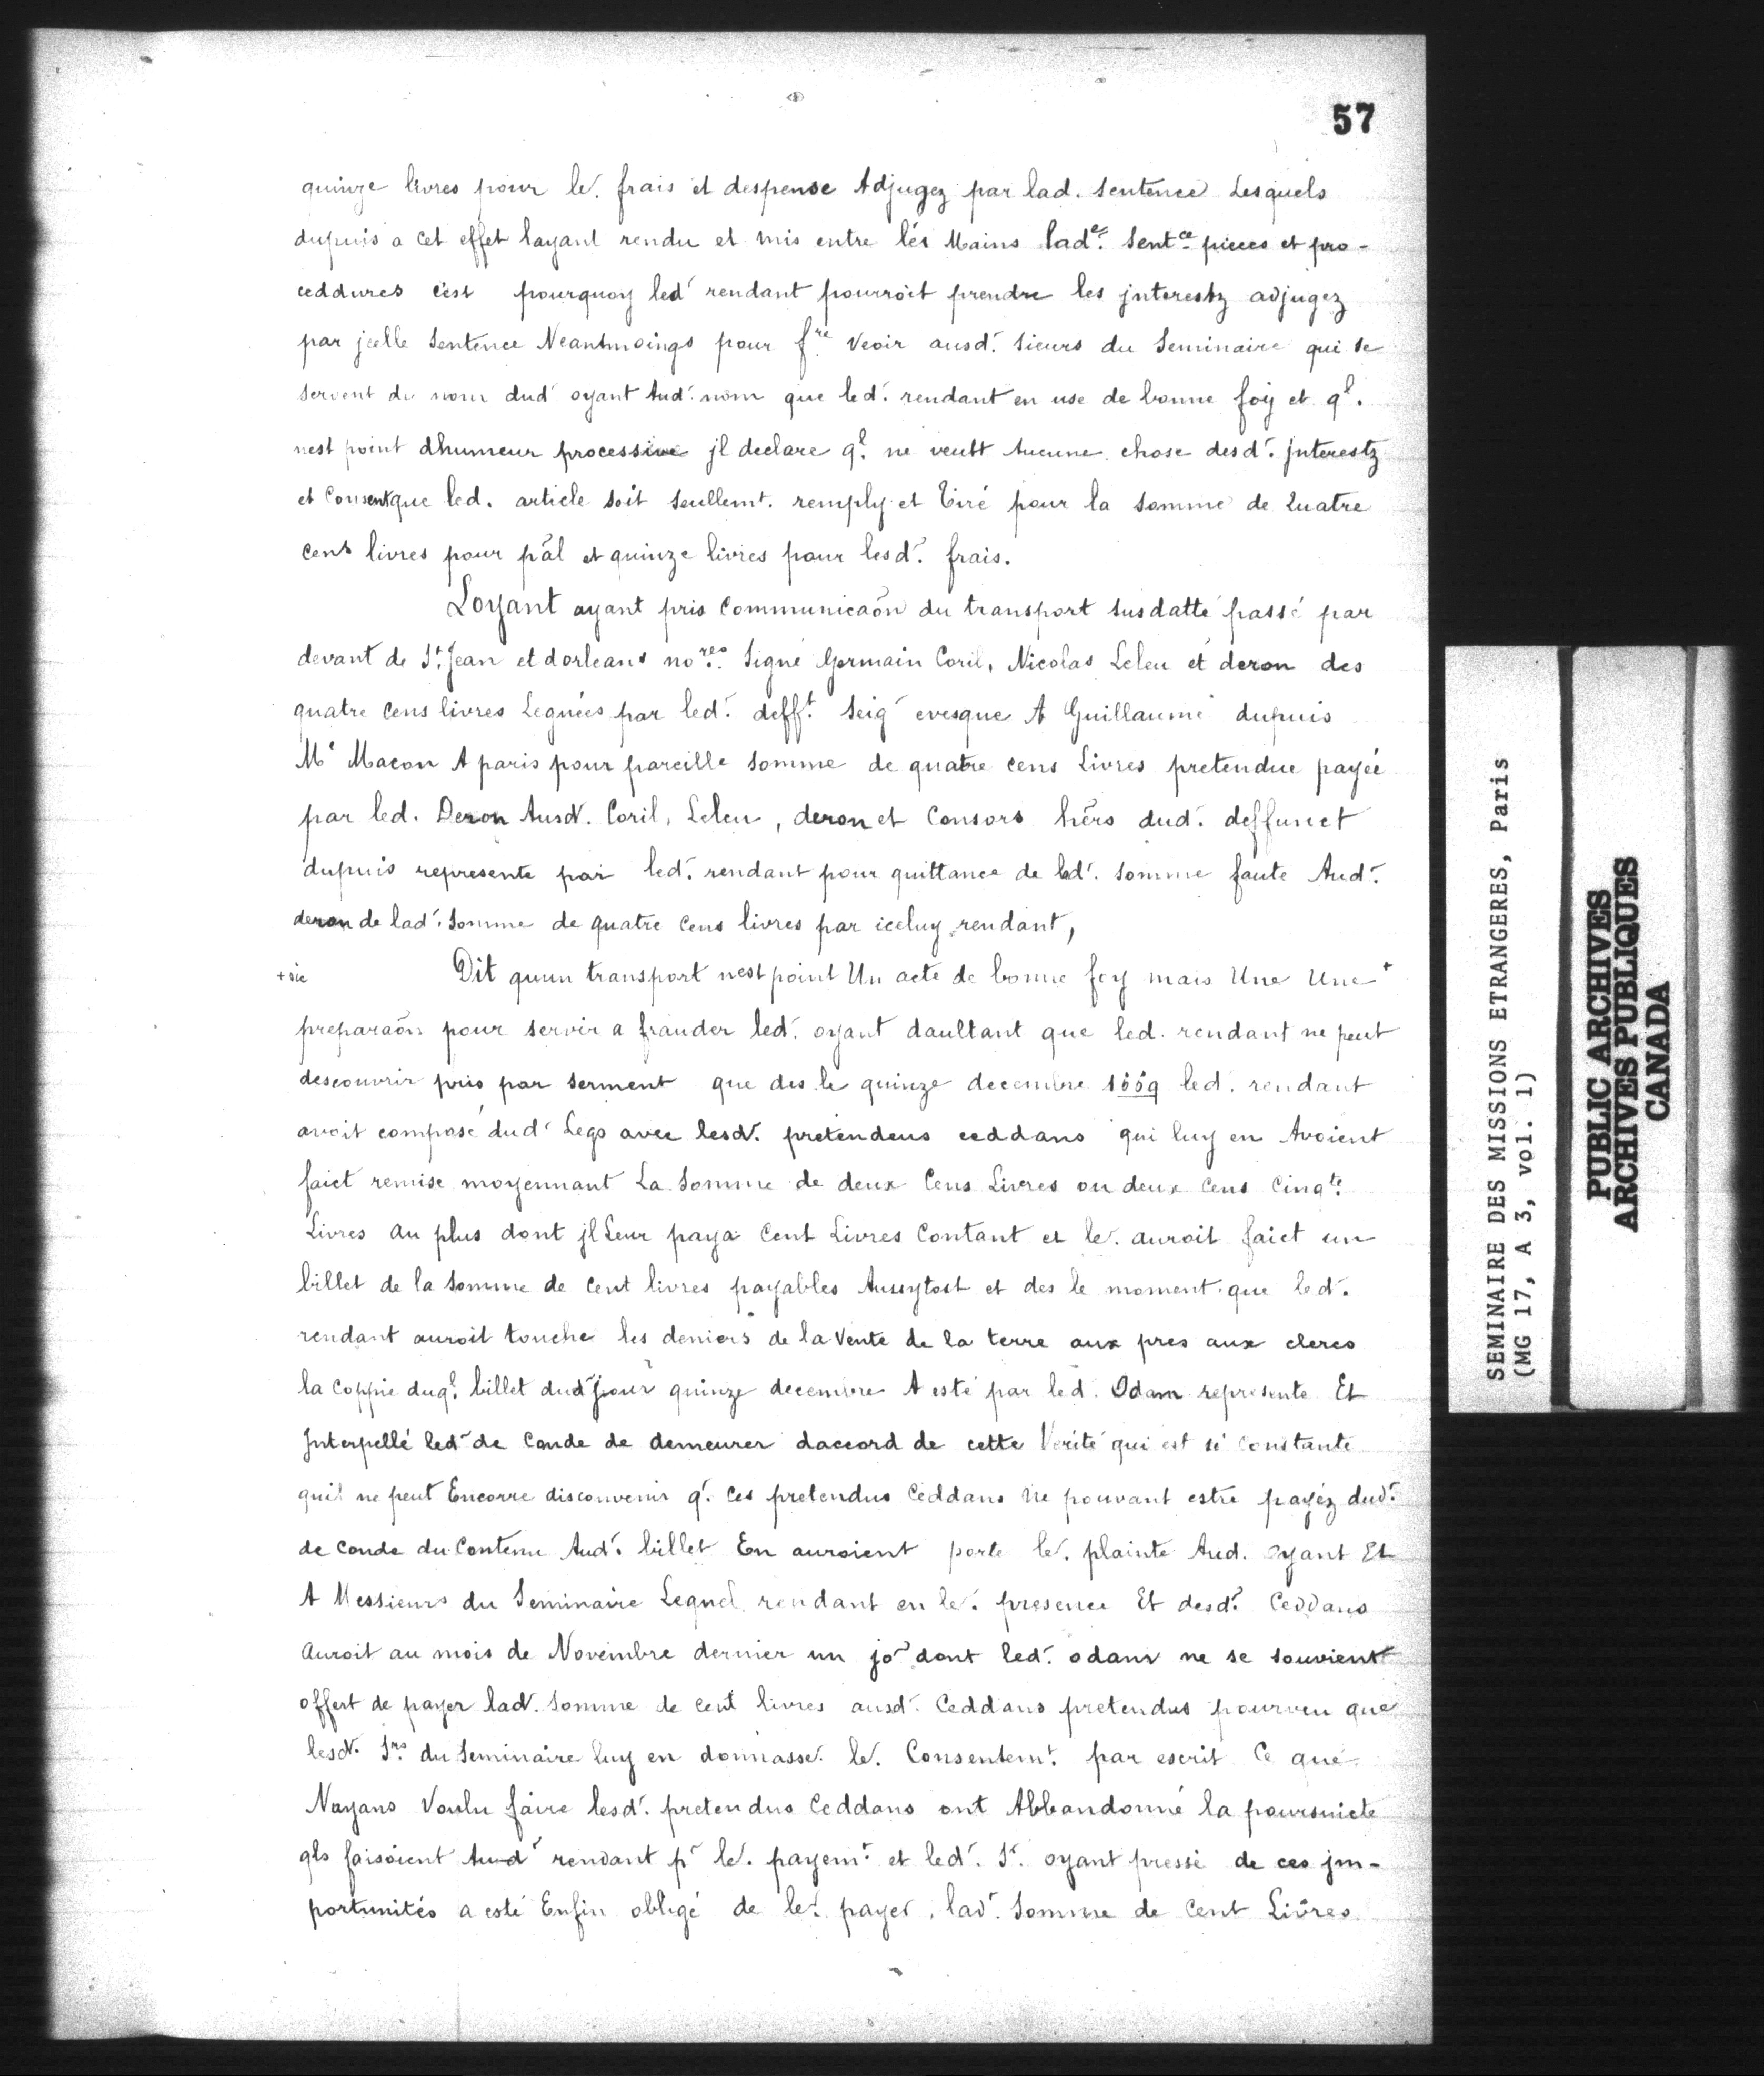 57
quinze livres pour le^r. frais et despense Adjugez par lad. sentence Lesquels
dupuis a cet effet layant rendu et mis entre lés Mains lad^e. Sent^ce pieces et pro-
ceddures c'est pourquoy led^t rendant pourroit prendre les jnterestz adjugez
par jcelle Sentence Neantmoings pour f^re. Veoir ausd^t. Sieurs du Seminaire qui se
servent du nom dud^t oyant Aud^t. nom que led^t. rendant en use de bonne foy et q^l.
nest point dhumeur processive jl declare q^l. ne veult Aucune chose desd^t. jnterestz
et Consent que led. article soit seullem^t. remply et Tiré pour la somme de Quatre
cens livres pour pãl et quinze livres pour lesd^t. frais.
Loyant ayant pris Communicaõn du transport susdatté passé par
devant de S^t. Jean et dorleans no^res. Signé Germain Coril, Nicolas Leleu et deron des
quatre Cens livres Leguées par led^t. deff^t. Seig^r evesque A Guillaume dupuis
M^e Macon A paris pour pareille Somme de quatre cens Livres pretendue payée
par led. Deron Ausd^t. Coril, Leleu, deron et Consors hẽrs dud^t. deffunct
dupuis represente par led^t. rendant pour quittance de lad^t. somme faute Aud^t.
deron de lad^t. Somme de quatre Cens livres par iceluy rendant,
+ sic Dit quun transport nest point Un acte de bonne foy mais Une Une +
preparaõn pour servir a frauder led^t. oyant daultant que led. rendant ne peut
descouvrir pris par serment que des le quinze decembre 1669 led. rendant
avoit composé dud^t Legs avec lesd^t. pretendeus ceddans qui luy en Avoient
faict remise moyennant La Somme de deux Cens Livres ou deux Cens Cinq^te.
Livres au plus dont jl Leur paya Cent Livres Contant et le^r. auroit faict un
billet de la Somme de Cent livres payables Aussytost et des le moment que led^t.
rendant auroit touche les deniers de la Vente de la terre aux pres aux clercs
la Coppie duq^l. billet dud^t jour quinze decembre A esté par led. Odam representé Et
Jnterpellé led^t de Conde de demeurer daccord de cette Verité qui est si Constante
quil ne peut Encorre disconvenir q^e. Ces pretendus Ceddans Ne pouvant estre payéz dud^t.
de Conde du Contenu Aud^t. billet En auroient porte le^r. plainte Aud. Oyant Et
A Messieurs du Seminaire Lequel rendant en le^r. presence Et desd^t. Ceddans
Auroit au mois de Novembre dernier un jo^r dont led^t. odam ne se souvient
offert de payer lad^t. Somme de cent livres ausd^t. Ceddans pretendus pourveu que
lesd^t. S^rs. du Seminaire luy en donnasse^t. le^r. Consentem^t. par escrit Ce que
Nayans Voulu faire lesd^t. pretendus Ceddans ont Abbandonné la poursuicte
q^ls faisoient Aud^t rendant p^r le^r. payem^t. et led^t. S^r. oyant pressé de ces jm-
portunités a esté Enfin obligé de le^r. payer, lad^t. Somme de Cent Livres
SEMINAIRE DES MISSIONS ETRANGERES, Paris
(MG 17, A 3, vol. 1)
PUBLIC ARCHIVES
ARCHIVES PUBLIQUES
CANADA